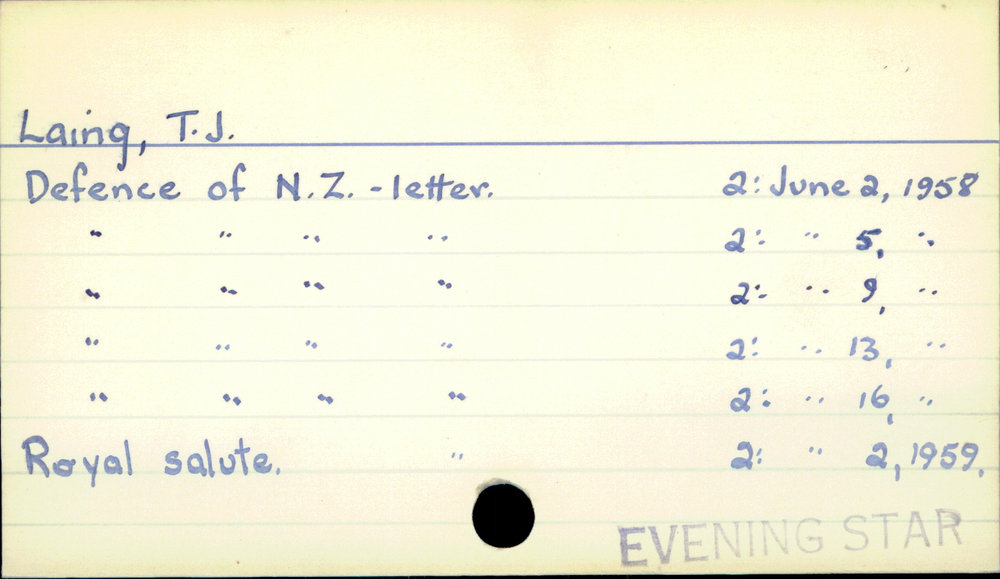 Laing, T.J.
Defence of N.Z. - letter. 2: June 2, 1958
" " " " 2: " 5, "
" " " " 2: " 9, "
" " " " 2: " 13, "
" " " " 2: " 16, "
Royal salute. " 2: " 2, 1959.
EVENING STAR